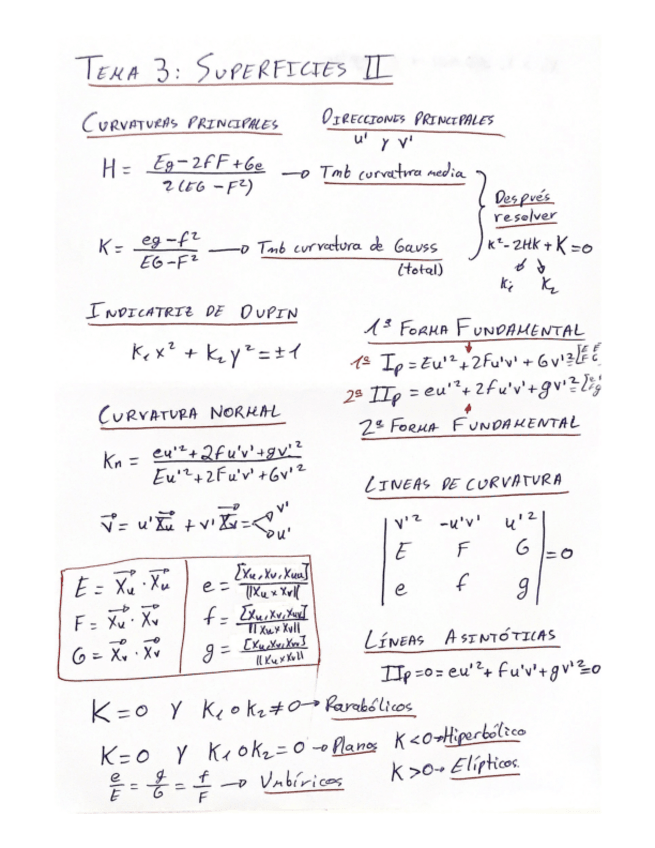 TEMA 3: SUPERFICIES II
CURVATURAS PRINCIPALES
H = Eg-2fF+Ge / 2(EG-F²) → Tmb curvatura media
K = eg-f² / EG-F² → Tmb curvatura de Gauss
(total)
DIRECCIONES PRINCIPALES
u' y v'
Después
resolver
k²-2HK+K=0
K₁ K₂
INDICATRIZ DE DUPIN
K₁x² + K₂y² = ±1
1ª FORMA FUNDAMENTAL
1ª Iₚ = Eu'² + 2Fu'v' + Gv'² =
2ª IIₚ = eu'² + 2fu'v' + gv'² =
2ª FORMA FUNDAMENTAL
CURVATURA NORMAL
Kn = eu'²+2fu'v'+gv'² / Eu'²+2Fu'v'+Gv'²
v = u'Xu + v'Xv = < v' u'
LINEAS DE CURVATURA
| v'² -u'v' u'² |
| E F G | = 0
| e f g |
E = Xu · Xu
F = Xu · Xv
G = Xv · Xv
e = [Xu,Xv,Xuu] / ||Xu x Xv||
f = [Xu,Xv,Xuv] / ||Xu x Xv||
g = [Xu,Xv,Xvv] / ||Xu x Xv||
LÍNEAS ASINTÓTICAS
IIp=0=eu'²+fu'v'+gv'²=0
K=0 Y K₁ o K₂≠0 → Parabólicos
K=0 Y K₁ o K₂=0 → Planos
K<0 → Hiperbólico
K>0 → Elípticos.
e/E = g/G = f/F → Umbíricos